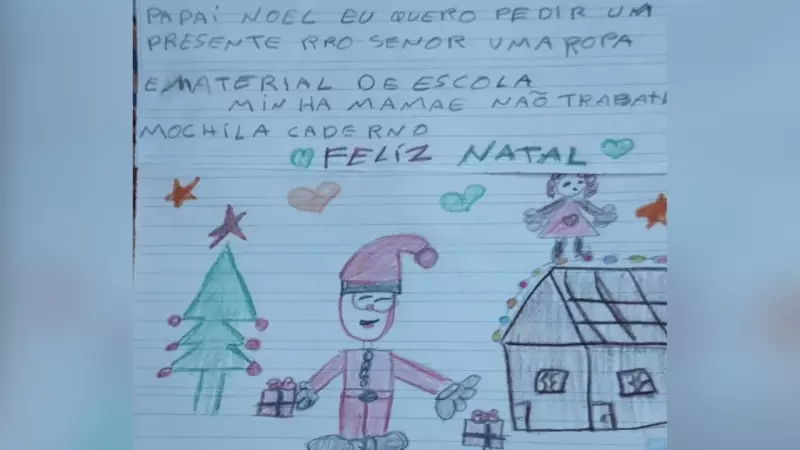 PAPAÍ NOEL EU QUERO PEDIR UM
PRESENTE PRO SENOR UMA ROPA
E MATERIAL DE ESCOLA
MINHA MAMAE NÃO TRABAH
MOCHILA CADERNO
FELIZ NATAL